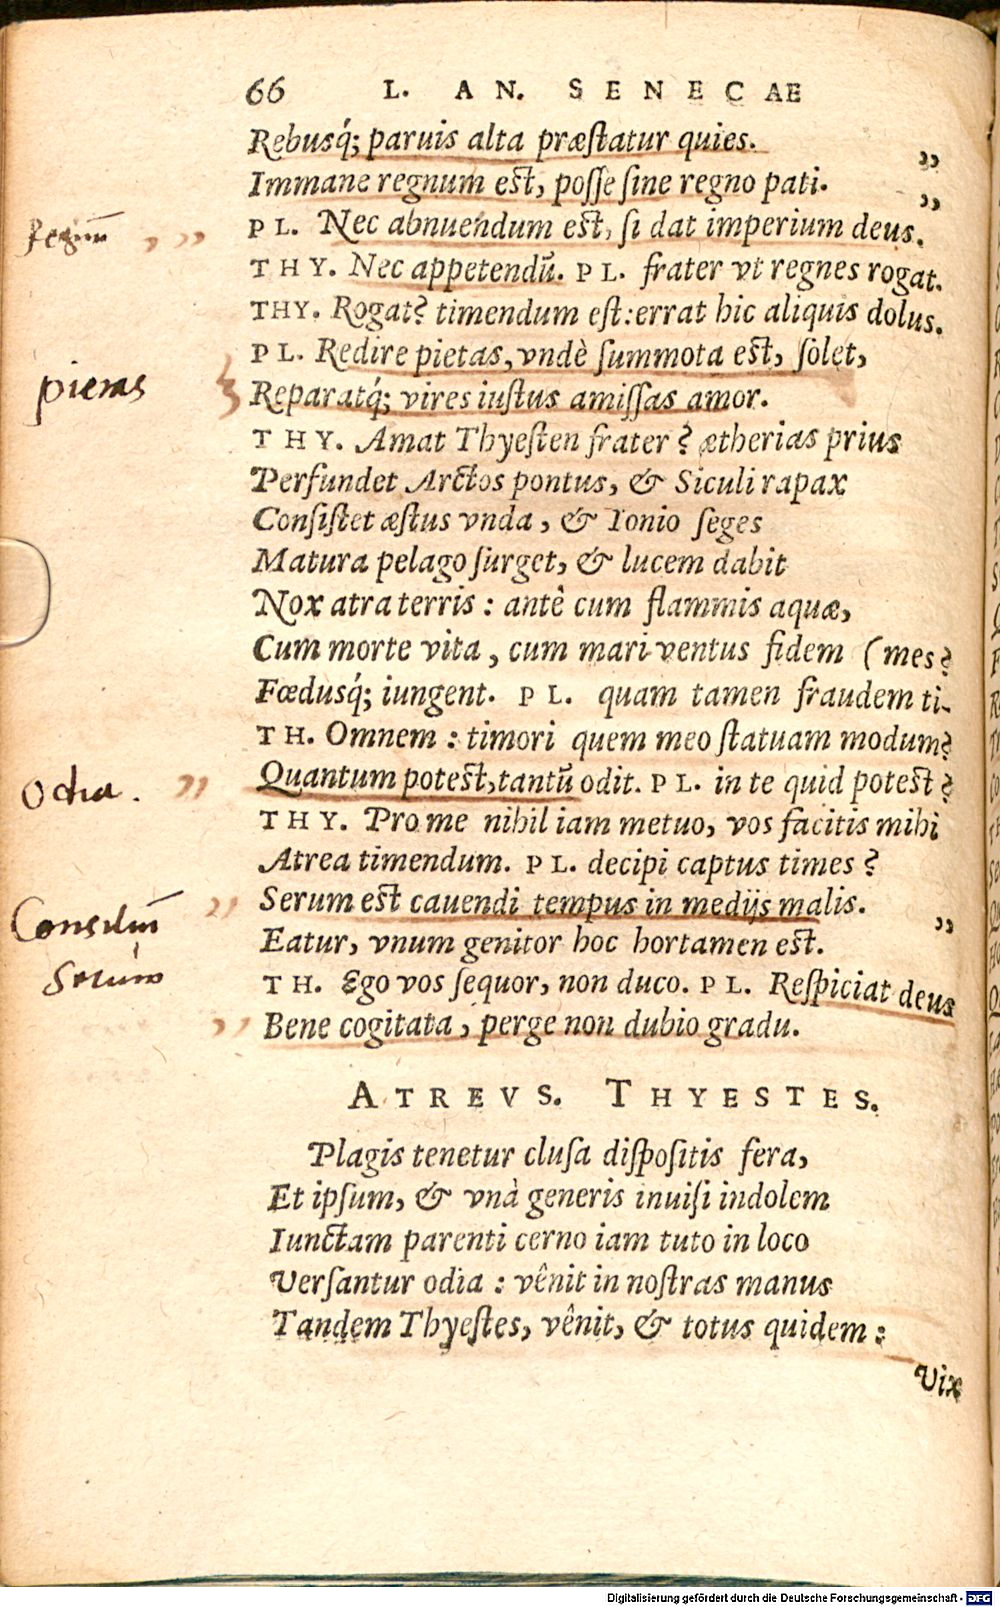 66 L. AN. SENECAE
Rebusq́; paruis alta præstatur quies. ”
Immane regnum est, posse sine regno pati. ”
Regnũ ,,,
PL. Nec abnuendum est, si dat imperium deus.
THY. Nec appetendũ. PL. frater vt regnes rogat.
THY. Rogat? timendum est: errat hic aliquis dolus.
PL. Redire pietas, vndè summota est, solet,
pietas
Reparatq́; vires iustus amissas amor.
THY. Amat Thyesten frater? ætherias prius
Perfundet Arctos pontus, & Siculi rapax
Consistet æstus vnda, & Ionio seges
Matura pelago surget, & lucem dabit
Nox atra terris: antè cum flammis aquæ,
Cum morte vita, cum mari ventus fidem (mes?
Fœdusq́; iungent. PL. quam tamen fraudem ti-
TH. Omnem: timori quem meo statuam modum?
Odia. ”
Quantum potest, tantũ odit. PL. in te quid potest?
THY. Pro me nihil iam metuo, vos facitis mihi
Atrea timendum. PL. decipi captus times?
Consiliũ ”
Serum est cauendi tempus in medijs malis. ”
Eatur, vnum genitor hoc hortamen est.
serum
TH. Ego vos sequor, non duco. PL. Respiciat deus
” Bene cogitata, perge non dubio gradu.
ATREVS. THYESTES.
Plagis tenetur clusa dispositis fera,
Et ipsum, & vnà generis inuisi indolem
Iunctam parenti cerno iam tuto in loco
Versantur odia: vênit in nostras manus
Tandem Thyestes, vênit, & totus quidem:
Vix
Digitalisierung gefördert durch die Deutsche Forschungsgemeinschaft - DFG